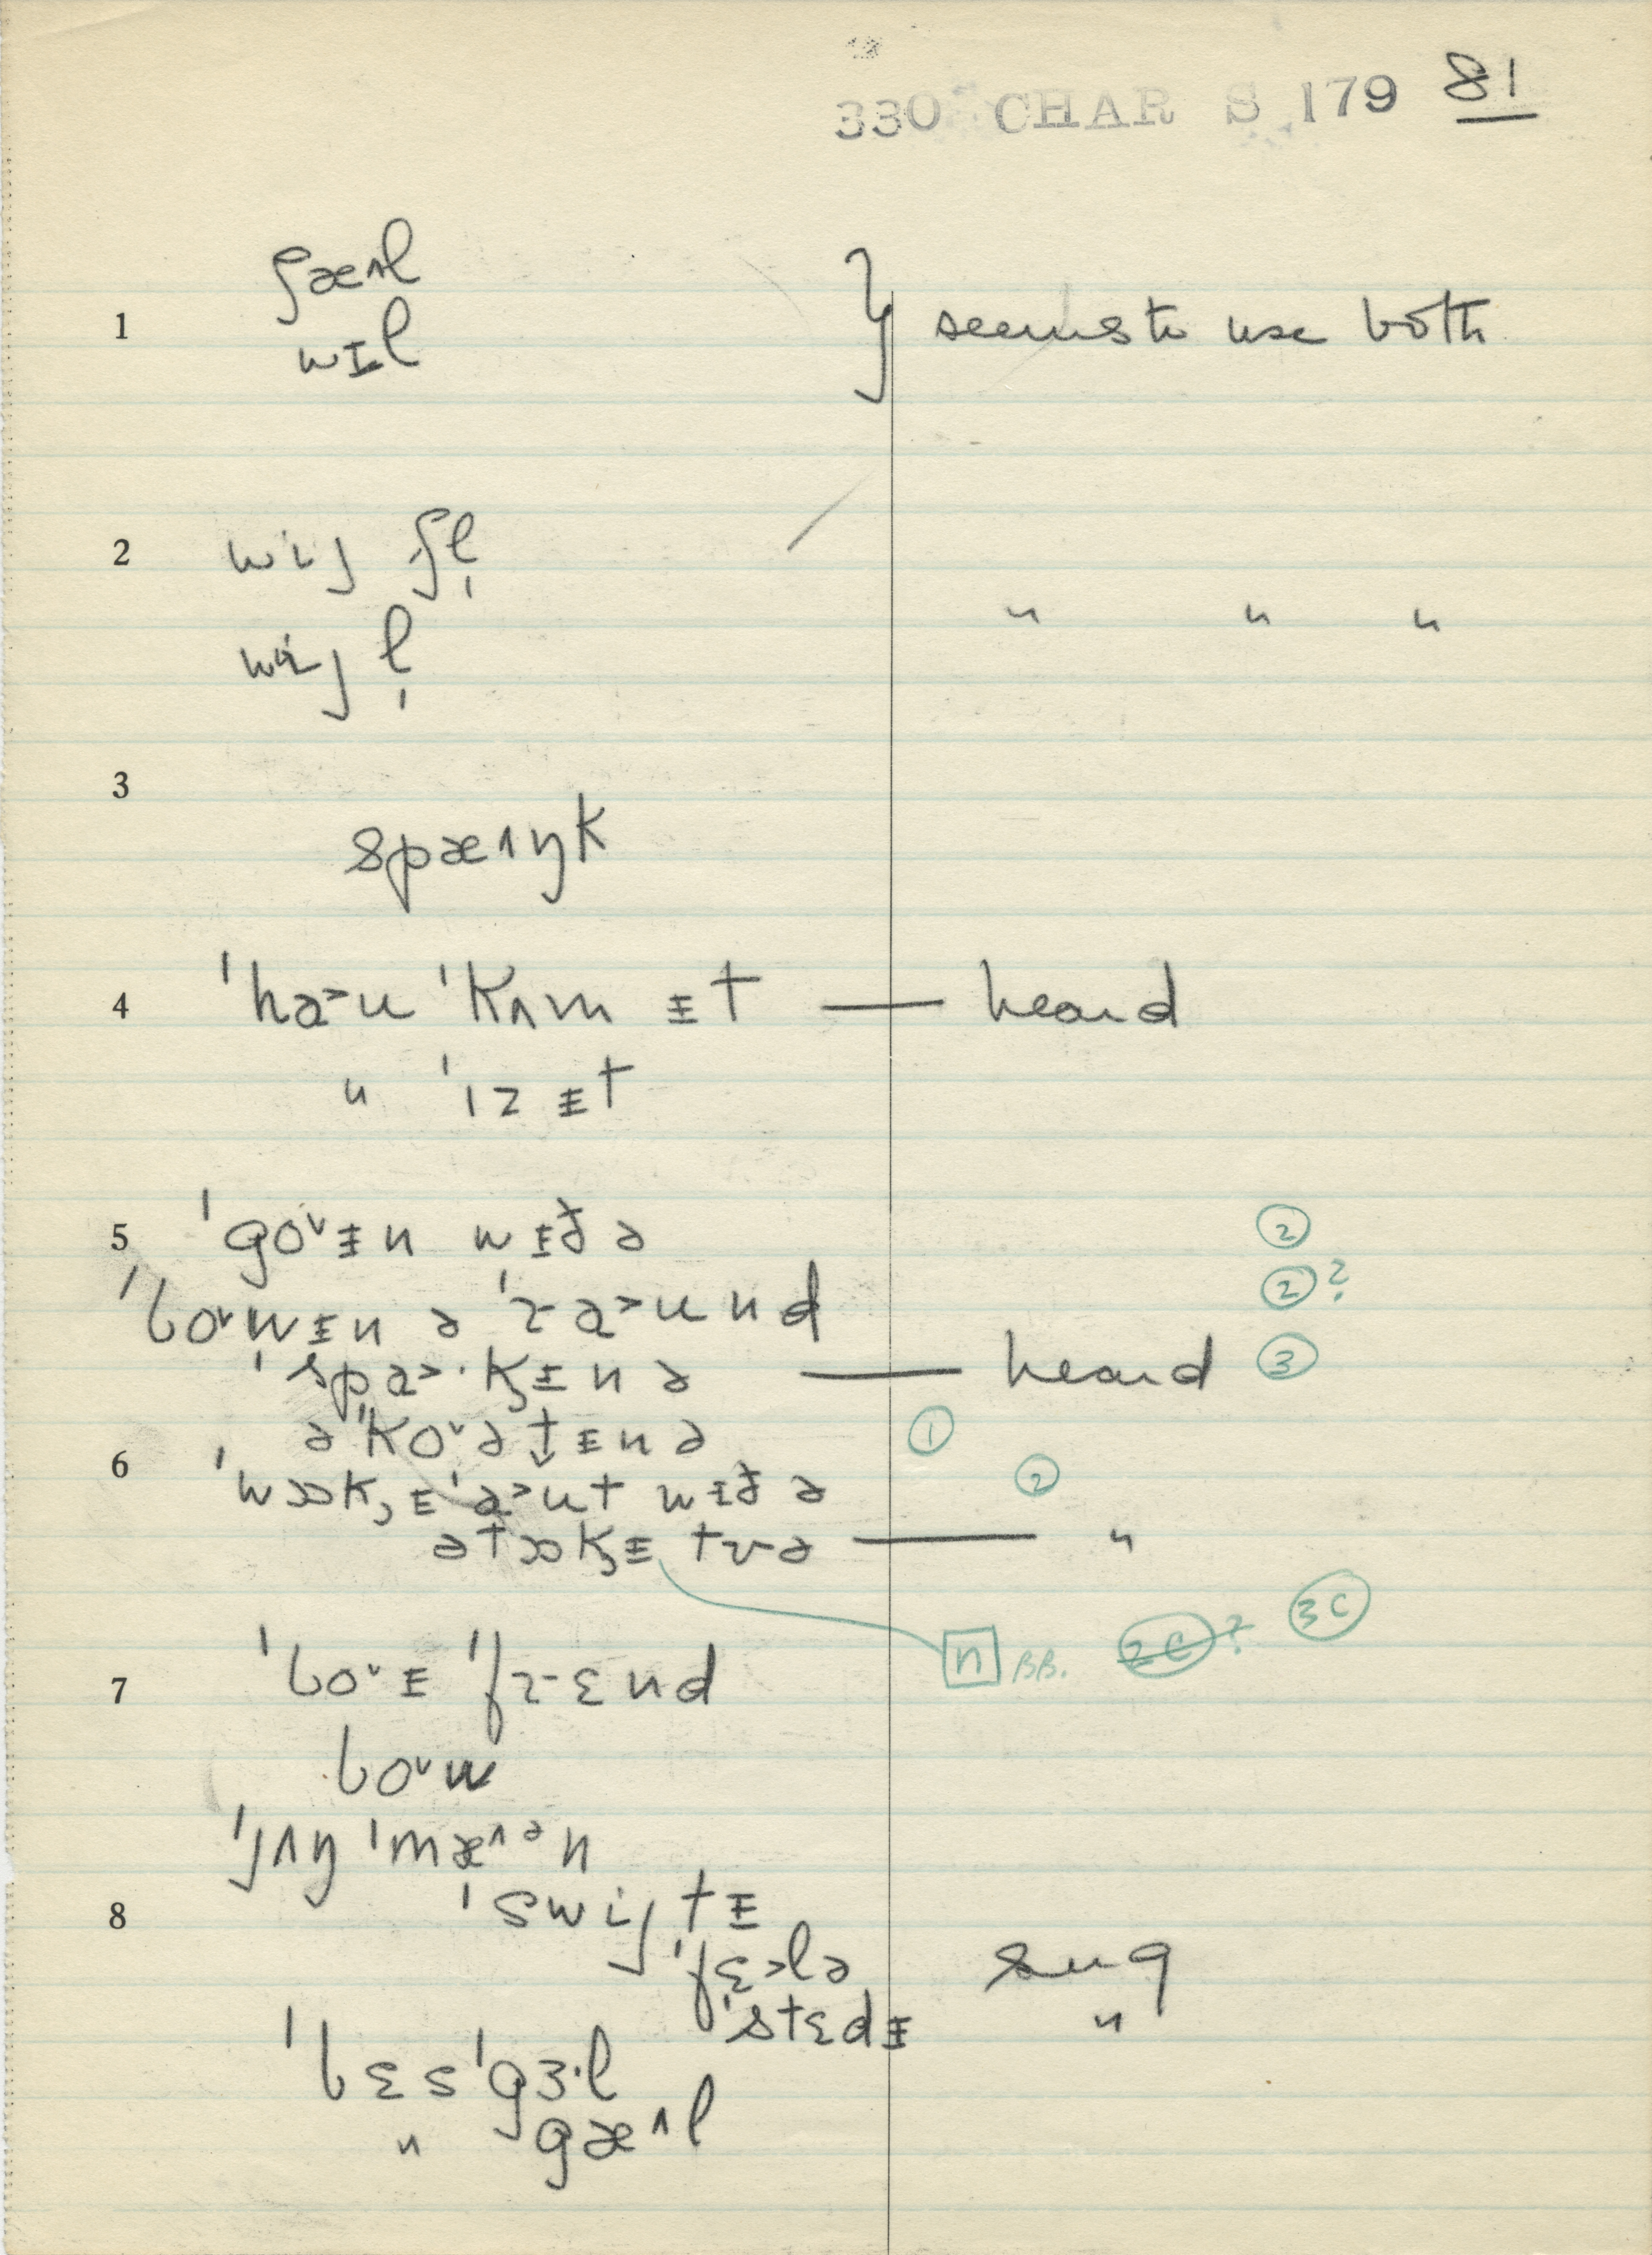 330 CHAR S 179 81
ʃæ˄l
1 } seems to use both
wɪl
2 wij ʃl̩
" " "
wij l̩
3
spæ˄ŋk
4 ˈha˃u ˈkʌm ᵻt — heard
" ˈɪz ᵻt
5 ˈgo˅ᵻn wᵻð ə ②
ˈbo˅wᵻn ə ˈra˃und ②?
ˈspa˃·k̡ᵻn ə — heard ③
əˈko˅ətᵻn ə ①
6 ˈwɔk̡ᵻˈa˃ut wᵻð ə ②
ətɔk̡ᵻ tʊə — "
n BB. 2C? 3C
7 ˈbo˅ᵻ ˈfrɛnd
bo˅w
ˈjʌŋ ˈmæ˄ᵊn
8 ˈswijtᵻ
ˈfɛ˃lə sug
ˈstɛdᵻ "
ˈbɛsˈgɜ·l
" gæ˄l